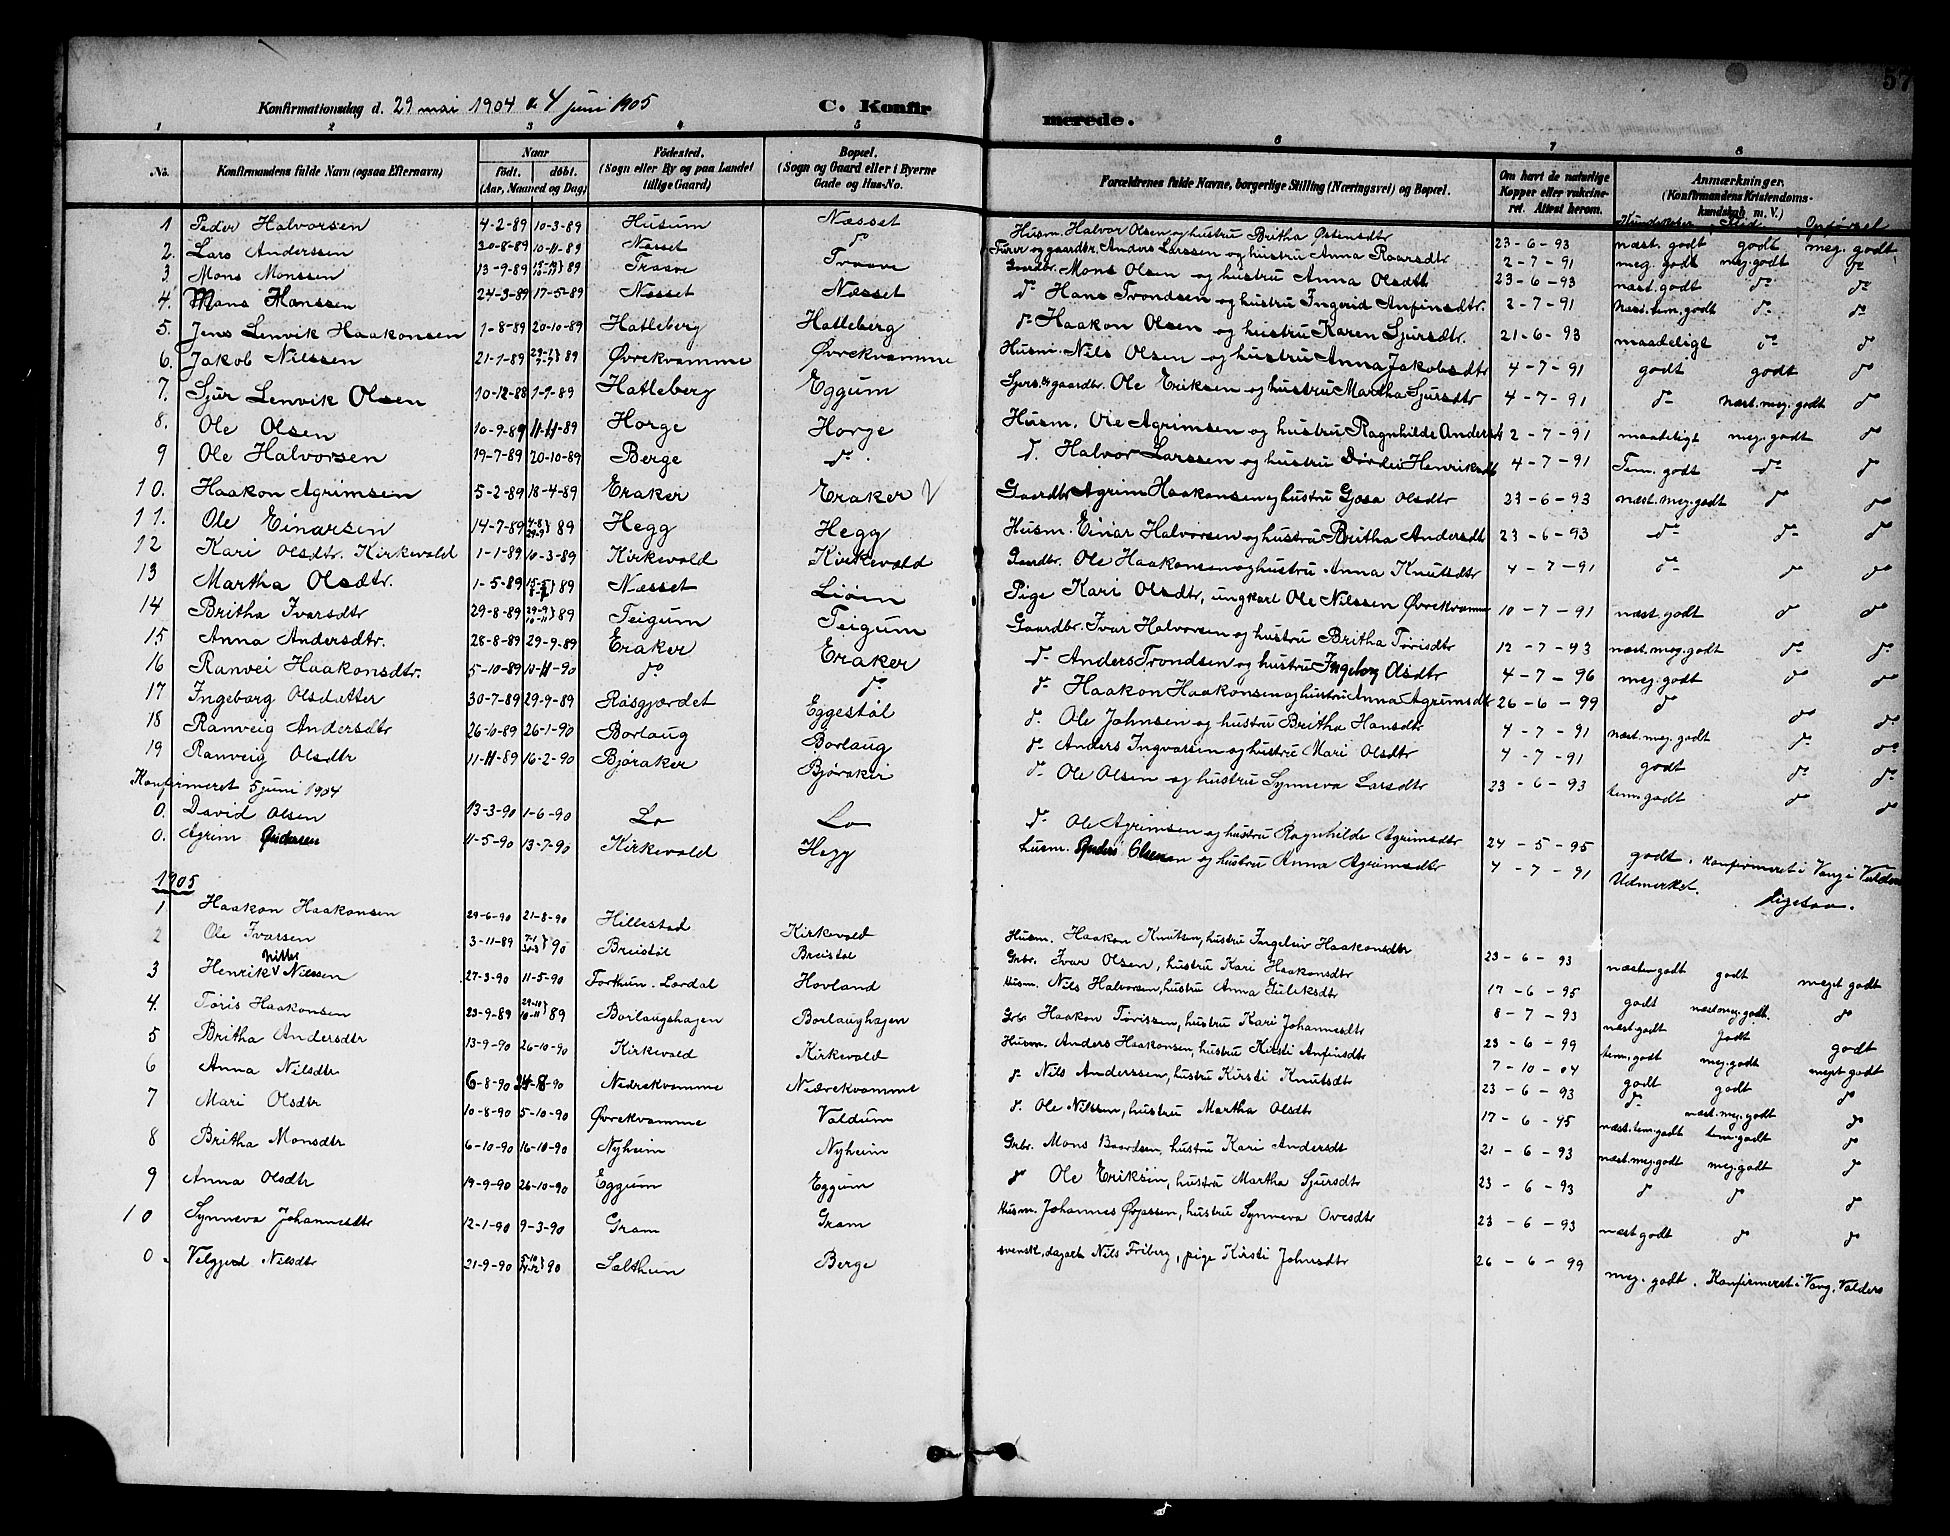 57
Konfirmationsdag d. 29 mai 1904 & 4 juni 1905 C. Konfirmerede.
1 2 3 4 5 6 7 8
No. Konfirmandens fulde Navn (ogsaa Efternavn) Naar født. døbt. (Aar, Maaned og Dag) Fødested. (Sogn eller By og paa Landet tillige Gaard) Bopæl. (Sogn og Gaard eller i Byerne Gade og Hus-No. Forældrenes fulde Navne, borgerlige Stilling (Næringsvei) og Bopæl. Om havt de naturlige Kopper eller vakcineret. Attest herom. Anmærkninger. (Konfirmandens Kristendomskundskab m. V.)
Kundskaber Flid Opførsel
1 Peder Halvorsen 4-2-89 10-3-89 Husum Næsset Husm. Halvor Olsen og hustru Britha Østensdtr 23-6-93 næst. godt godt meg. godt
2. Lars Anderssen 20-8-89 10-11-89 Næsset do Furer og gaardbr. Anders Larssen og hustru Anna Baarsdtr 2-7-91 meg. godt meg. godt do
3 Mons Monssen 13-9-89 89 Traave Traave Gaardbr. Mons Olsen og hustru Anna Olsdtr 23-6-93 næst. godt do do
4. Mons Hanssen 24-3-89 17-5-89 Næsset Næsset do Hans Trondsen og hustru Ingerid Anfinsdtr. 2-7-91 Næst. tem. godt do do
5. Jens Lenvik Haakonsen 1-8-89 20-10-89 Hatleberg Hatleberg do Haakon Olsen og hustru Karen Sjursdtr. 21-6-93 maadeligt do do
6. Jakob Nilssen 21-1-89 89 Øvrekvamme Øvrekvamme Husm. Nils Olsen og hustru Anna Jakobsdtr 4-7-91 godt godt do
7. Sjur Lenvik Olsen 10-12-88 1-1-89 Hatleberg Eggum gaardbr. Ole Eriksen og hustru Martha Sjursdtr 4-7-91 do næst. meg. godt do
8. Ole Olsen 10-9-89 11-11-89 Horge Horge Husm. Ole Agrimsen og hustru Ragnhilde Anders 2-7-91 maateligt meg. godt do
9 Ole Halvorsen 19-7-89 20-10-89 Berge do do. Halvor Larssen og hustru Dordei Henriksdt 4-7-91 Tem. godt do do
10. Haakon Agrimsen 5-2-89 18-4-89 Eraker Eraker V Gaardbr Agrim Haakonsen og hustru Gjøsa Olsdtr 23-6-93 næst. meg. godt do do
11. Ole Einarsen 14-7-89 89 Hegg Hegg Husm. Einar Halvorsen og hustru Britha Andersdtr 23-6-93 do do do
12 Kari Olsdtr. Kirkevold 1-1-89 10-3-89 Kirkevold Kirkevold Gaardbr. Ole Haakonsen og hustru Anna Knutsdtr 4-7-91 do do do
13 Martha Olsdtr. 1-5-89 89 Næsset Liøin Pige Kari Olsdtr, ungkarl Ole Nilssen Øvrekvamme 10-7-91 næst. godt do do
14 Britha Ivarsdtr 29-8-89 89 Teigum Teigum Gaardbr. Ivar Halvorsen og hustru Britha Torisdtr 12-7-93 næst. meg. godt do do
15 Anna Andersdtr. 28-8-89 29-9-89 Eraker Eraker do Anders Trondsen og hustru Ingeborg Olsdtr 4-7-96 meg. godt do do
16 Ranvei Haakonsdtr. 5-10-89 10-11-90 do do do Haakon Haakonsen og hustru Anna Agrimsdtr 26-6-99 do do do
17 Ingeborg Olsdatter 30-7-89 29-9-89 Røsgjærdet Eggestøl do. Ole Johnsen og hustru Britha Hansdtr 4-7-91 næst. meg. godt do do
18 Ranveig Andersdtr 26-10-89 26-1-90 Borlaug Borlaug do Anders Ingvarsen og hustru Mari Olsdtr 4-7-91 godt do do
19 Ranveig Olsdtr 11-11-89 16-2-90 Bjøraker Bjøraker do Ole Olsen og hustru Synneva Larsdtr 23-6-93 tem. godt do do
Konfirmeret 5 juni 1904
0. David Olsen 13-3-90 1-6-90 Lo Lo do Ole Agrimsen og hustru Ragnhilde Agrimsdtr 24-5-95 godt. Konfirmeret i Vang i Valders
0. Agrim Andersen 11-5-90 13-7-90 Kirkevold Hegg husm. Anders Olsen og hustru Anna Agrimsdtr 4-7-91 Udmerket. ligesaa.
1905
1 Haakon Haakonsen 29-6-90 21-8-90 Hillestad Kirkevold Husm. Haakon Knutsen, hustru Ingeleiv Haakonsdtr 23-6-93 næsten godt godt meget godt
2 Ole Ivarsen 3-11-89 90 Breistøl Breistøl Grbr. Ivar Olsen, hustru Kari Haakonsdtr 17-6-95 godt næst meg. godt. do
3 Henrik Nitter Nilssen 27-3-90 11-5-90 Torkun. Lærdal Hovland Husm. Nils Halvorsen, hustru Anna Guliksdtr 8-7-93 næst. godt godt godt
4. Toris Haakonsen 23-9-89 89 Borlaugshagen Borlaughagen Grbr Haakon Torissen, hustru Kari Johannesdtr 23-6-99 tem. godt meg. godt meget godt
5 Britha Andersdtr 13-9-90 26-10-90 Kirkevold Kirkevold Husm. Anders Haakonsen, hustru Kirsti Anfinsdtr 7-10-04 godt godt do
6 Anna Nilsdtr 6-8-90 24-8-90 Nedrekvamme Nedrekvamme do Nils Anderssen, hustru Kirsti Knutsdtr 23-6-93 do næst. meg. godt do
7 Mari Olsdtr 10-8-90 5-10-90 Øvrekvamme Valdum do. Ole Nilssen, hustru Martha Olsdtr 17-6-95 næst. tem. godt tem. godt do
8 Britha Monsdtr 6-10-90 16-10-90 Nyheim Nyheim Grbr. Mons Baardsen, hustru Kari Andersdt 21-6-93 næst. meg. godt meg. godt do
9 Anna Olsdtr 19-9-90 26-10-90 Eggum Eggum do Ole Eriksen, hustru Martha Sjursdtr 23-6-93 do do do
10 Synneva Johannesdtr 12-1-90 9-3-90 Gram Gram Husm. Johannes Øvjassen, hustru Synneva Ovesdtr 23-6-93 næst godt do do
0. Velgjerd Nilsdtr 21-9-90 90 Salthun Berge svensk, dagarb. Nils Friberg, pige Kirsti Johnsdtr 26-6-99 meg. godt. Konfirmeret i Vang, Valders